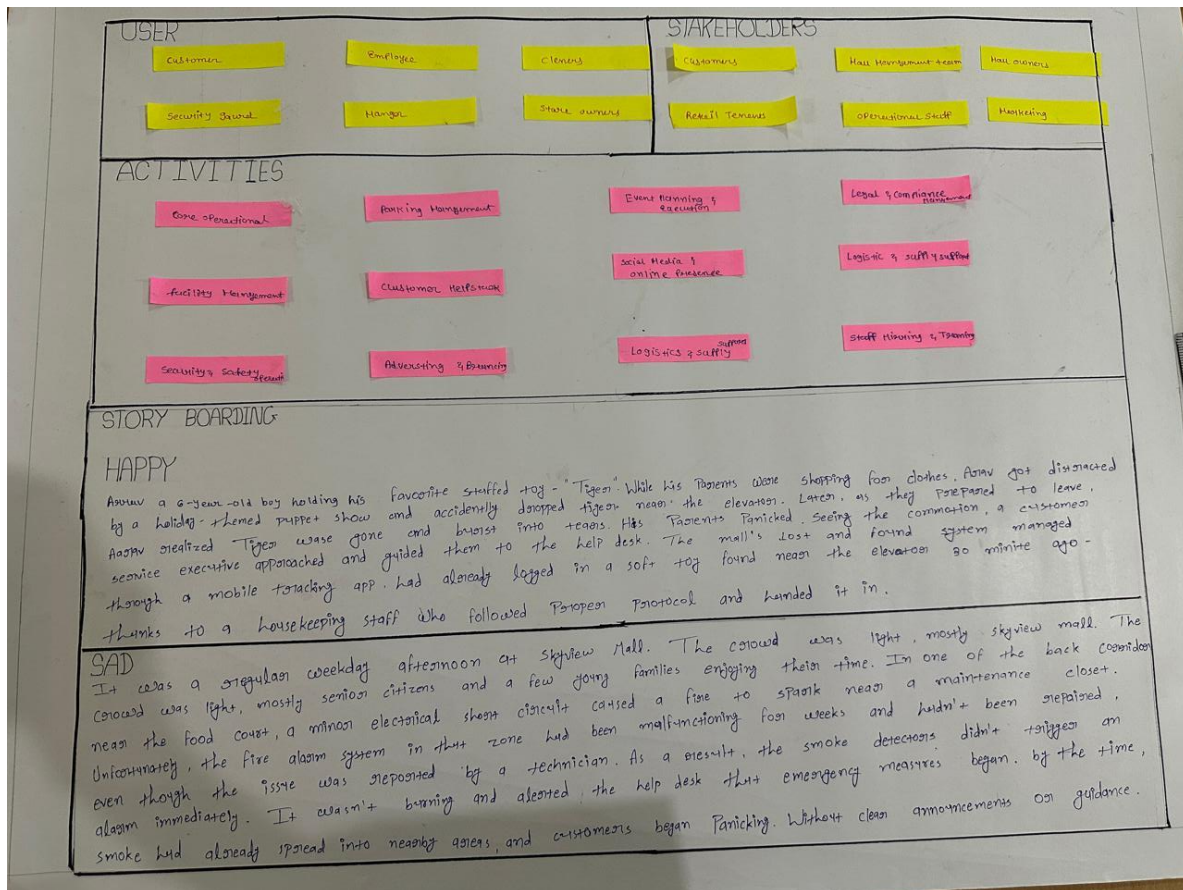 USER
Customer
Employee
Cleners
Security Gaurd
Manger
Store owners
STAKEHOLDERS
Customers
Mall Mangement team
Mall owners
Retail Tenents
Operational Staff
Marketing
ACTIVITIES
Core operational
Parking Mangement
Event Planning &
Execution
Legal & Compliance
Mangement
Facility Mangement
Customer Helpsdesk
Social Media &
online Presence
Logistic & supply support
Security & Safety
Adversting & Brancing
Logistics & Supply
Support
Staff Hiring & Training
STORY BOARDING
HAPPY
Aarav a 6-year-old boy holding his favorite stuffed toy - "Tiger" While his Parents were shopping for clothes, Arav got distracted
by a holiday-themed puppet show and accidently dropped tiger near the elevator. Later, as they prepared to leave,
Aarav realized Tiger wase gone and burst into tears. His Parents Panicked. Seeing the commotion, a customer
service executive approached and guided them to the help desk. The mall's Lost and found system managed
through a mobile tracking app. had already logged in a soft toy found near the elevator 30 minite ago -
thanks to a housekeeping staff who followed Proper Protocol and handed it in.
SAD
It was a regular weekday afternoon at Skyview Mall. The crowd was light, mostly skyview mall. The
crowd was light, mostly senior citizens and a few young families enjoying their time. In one of the back corridor
near the food court, a minor electrical short circuit caused a fire to spark near a maintenance closet.
Unfortunately, the fire alarm system in that zone had been malfunctioning for weeks and hadn't been repaired,
even though the issue was reported by a technician. As a result, the smoke detectors didn't trigger an
alarm immediately. It wasn't burning and alerted the help desk that emergency measures began. by the time,
smoke had already spread into nearby areas, and customers began Panicking. Without clear announcements or guidance.